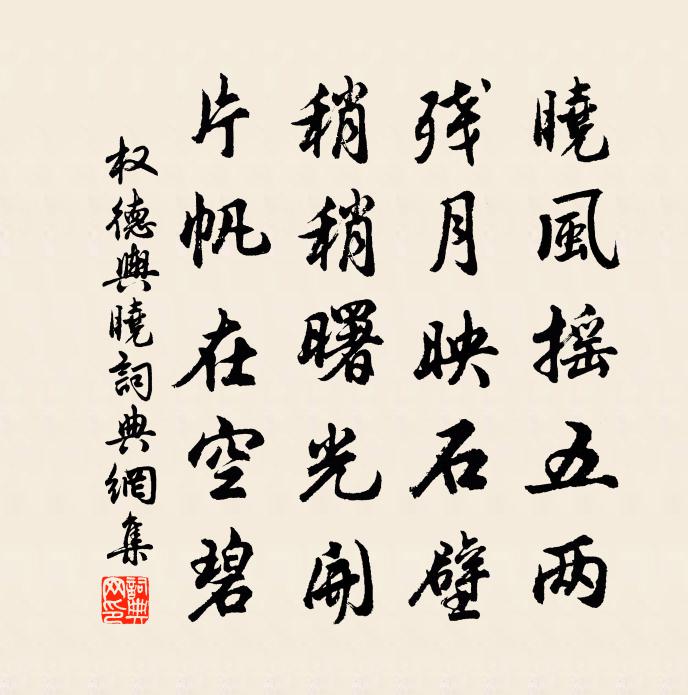 曉風摇五两
残月映石壁
稍稍曙光開
片帆在空碧
权德輿曉詞典網集
詞典网印